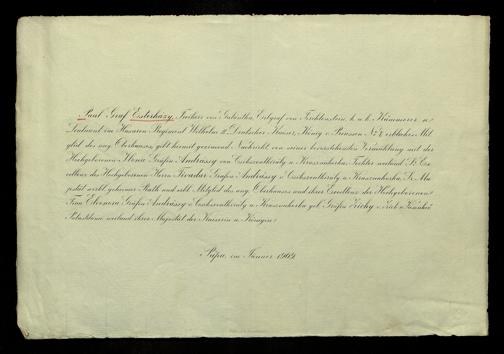 Paul Graf Esterházy, Freiherr von Galántha, Erbgraf von Forchtenstein, k. u. k. Kämmerer u.
Leutnant im Husaren Regiment Wilhelm II Deutscher Kaiser, König v. Preussen Nº 7, erbliches Mit-
glied des ung. Oberhauses, gibt hiermit geziemend Nachricht von seiner bevorstehenden Vermählung mit der
Hochgeborenen Ilona Gräfin Andrássy von Csíkszentkirály u. Krasznahorka, Tochter weiland Sr. Ex-
cellenz des Hochgeborenen Herrn Grafen Andrássy v. Csíkszentkirály u. Krasznahorka, S. Ma-
jestät wirkl. geheimer Rath und erbl. Mitglied des ung. Oberhauses und ihrer Excellenz der Hochgeborenen
Frau Eleonora Gräfin Andrássy v. Csíkszentkirály u. Krasznahorka geb. Gräfin Zichy v. Zich u. Vásonkeö
Palastdame weiland ihrer Majestät der Kaiserin u. Königin.
Pápa, im Jänner 1909.